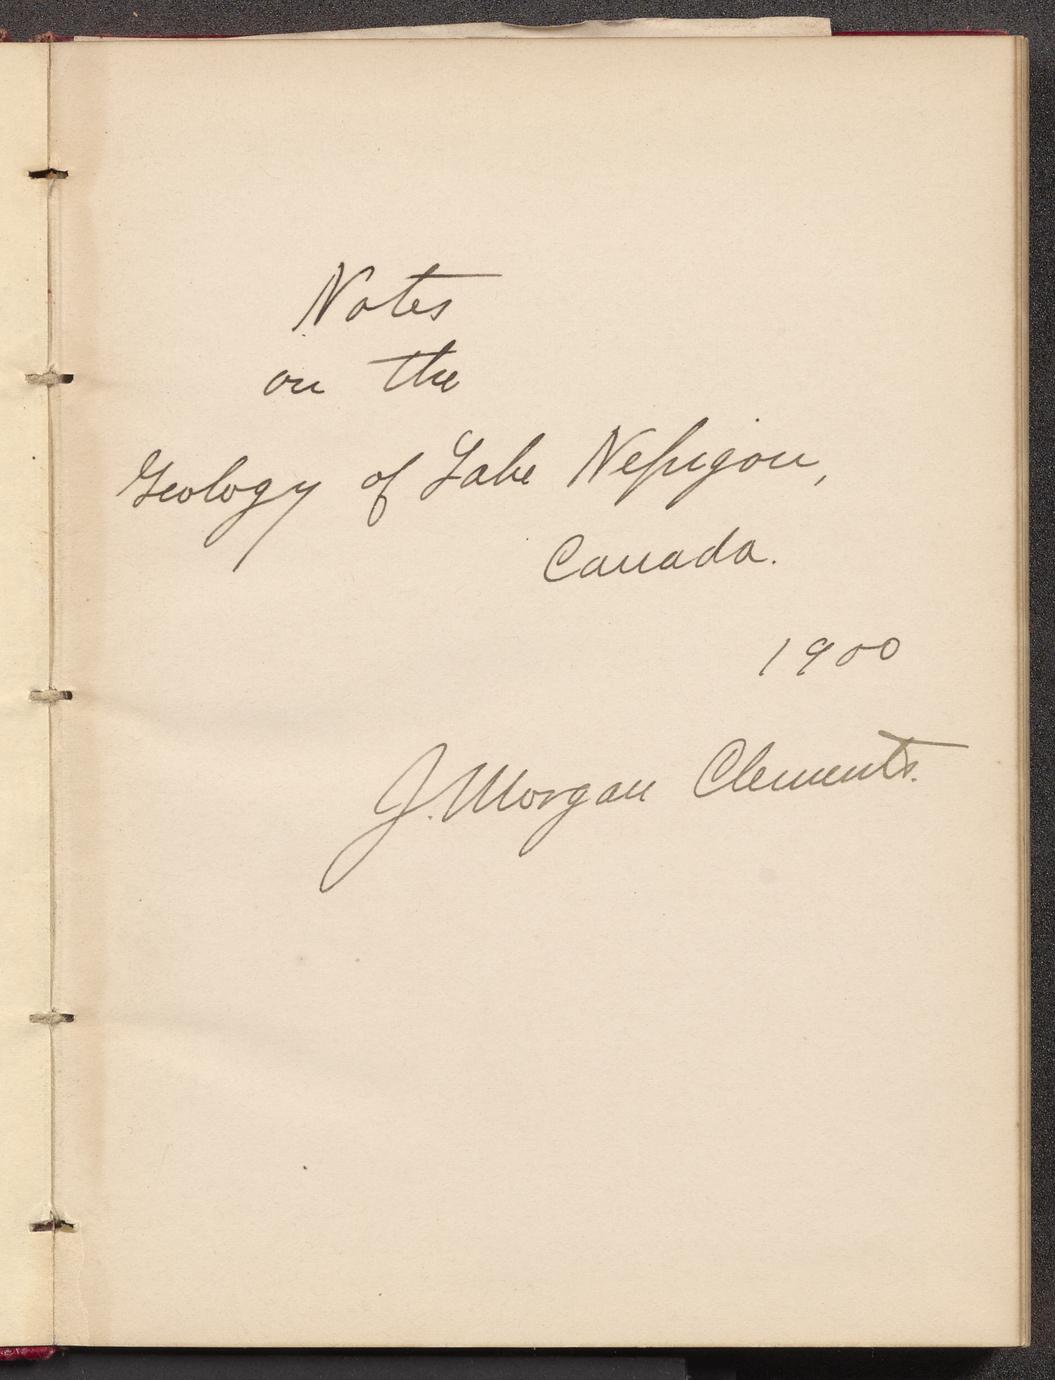 Notes
on the
Geology of Lake Nepigon,
Canada.
1900
J. Morgan Clements.